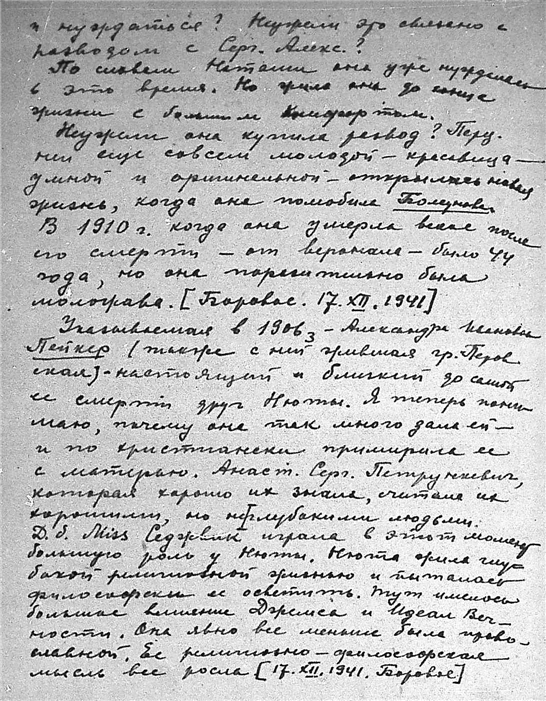 и нуждаться? Неужели это связано с
разводом с Серг. Алекс.?
По словам Наташи она уже нуждалась
в это время. Но жила она до конца
жизни с большим комфортом.
Неужели она купила развод? Перед
ней еще совсем молодой – красавица –
умной и оригинальной – открылась новая
жизнь, когда она полюбила
В 1910 г. когда она умерла вскоре после
его смерти – от веронала – было 44
года, но она поразительно была
моложава. [Боровое. 17.XII.1941]
Указываемая в 1906 – Александра Ивановна
Пейкер (также с ней жившая гр. Перов
ская) – настоящий и близкий до самой
ее смерти друг Нюты. Я теперь пони
маю, почему она так много дала ей –
и по христиански примирила ее
с матерью. Анаст. Серг. Петрункевич,
которая хорошо их знала, считала их
хорошими, но неглубокими людьми.
Д.б. Miss Седжвик играла в этот момент
большую роль у Нюты. Нюта жила глу
бокой религиозной жизнью и пыталась
философски ее осветить. Тут имелось
большое влияние Джемса и Идеал Веч-
ности. Она явно все меньше была право-
славной. Ее религиозно-философская
мысль все росла [17.XII.1941. Боровое]